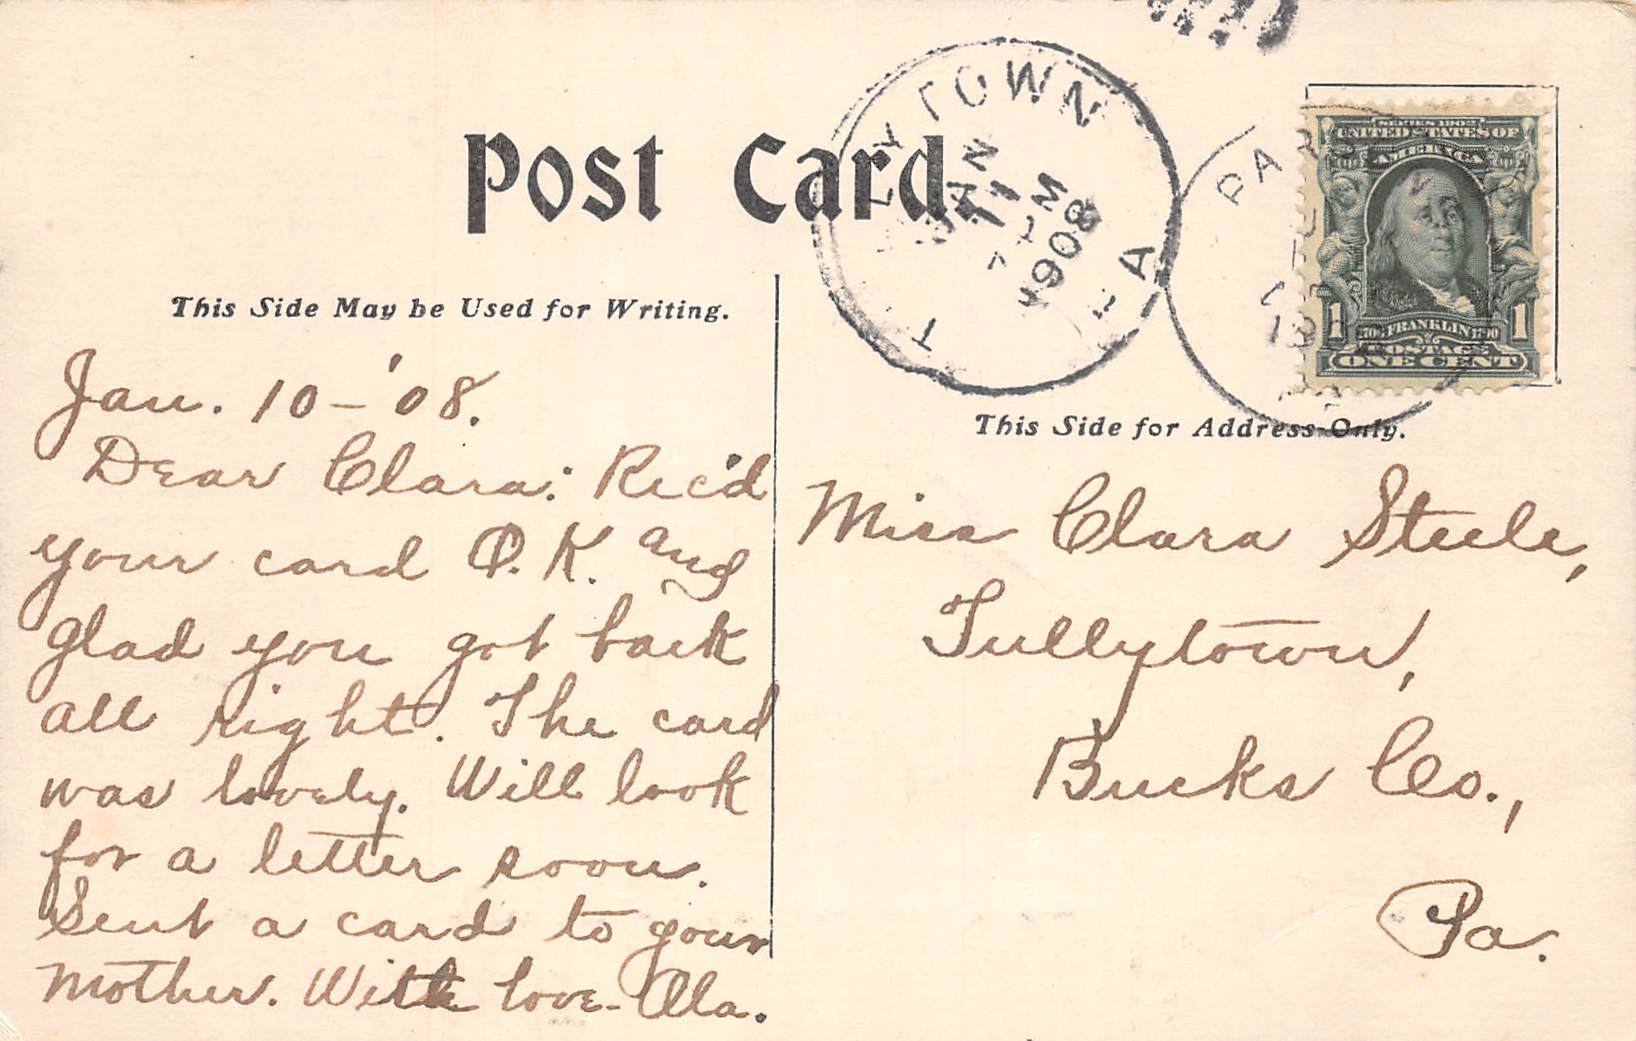 Post Card.
This Side May be Used for Writing.
This Side for Address Only.
TULLYTOWN
JAN
11
1908
PA
SERIES 1902
UNITED STATES OF
AMERICA
1706 FRANKLIN 1790
1 1
POSTAGE
ONE CENT
Jan. 10 - '08.
Dear Clara: Rec'd
your card O.K. and
glad you got back
all right. The card
was lovely. Will look
for a letter soon.
Sent a card to your
Mother. With love - Ola.
Miss Clara Steele,
Tullytown,
Bucks Co.,
Pa.